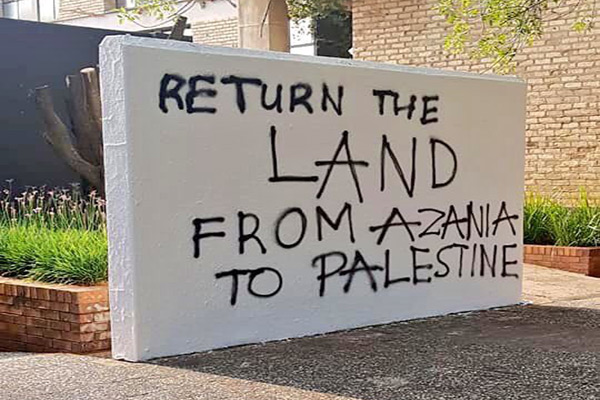 RETURN THE
LAND
FROM AZANIA
TO PALESTINE